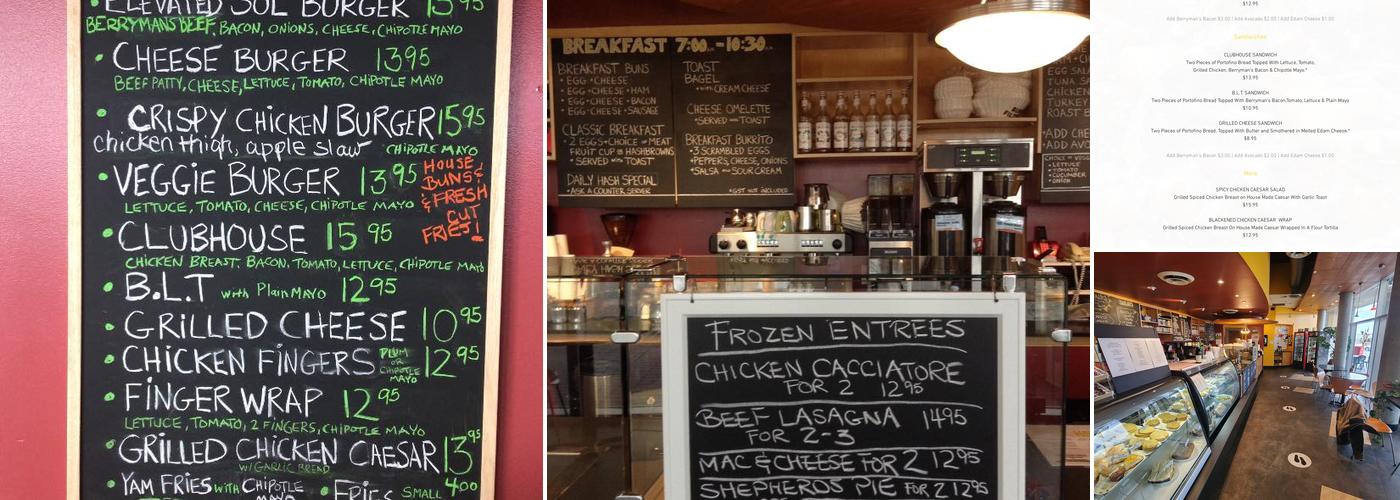 ELEVATED SOL BURGER 15 95
BERRYMANS BEEF, BACON, ONIONS, CHEESE, CHIPOTLE MAYO
• CHEESE BURGER 13 95
BEEF PATTY, CHEESE, LETTUCE, TOMATO, CHIPOTLE MAYO
• CRISPY CHICKEN BURGER 15 95
chicken thigh, apple slaw CHIPOTLE MAYO
• VEGGIE BURGER 13 95
LETTUCE, TOMATO, CHEESE, CHIPOTLE MAYO
HOUSE
BUNS
& FRESH
CUT
FRIES!
• CLUBHOUSE 15 95
CHICKEN BREAST, BACON, TOMATO, LETTUCE, CHIPOTLE MAYO
• B.L.T with Plain MAYO 12 95
• GRILLED CHEESE 10 95
• CHICKEN FINGERS PLUM OR CHIPOTLE MAYO 12 95
• FINGER WRAP 12 95
LETTUCE, TOMATO, 2 FINGERS, CHIPOTLE MAYO
• GRILLED CHICKEN CAESAR 13 95
W/ GARLIC BREAD
• YAM FRIES with CHIPOTLE MAYO • FRIES SMALL 4 00
BREAKFAST 7:00 - 10:30
BREAKFAST BUNS
• EGG + CHEESE
• EGG + CHEESE + HAM
• EGG + CHEESE + BACON
• EGG + CHEESE + SAUSAGE
CLASSIC BREAKFAST
• 2 EGGS + CHOICE OF MEAT
FRUIT CUP OR HASHBROWNS
• SERVED WITH TOAST
DAILY HASH SPECIAL
• ASK A COUNTER SERVER
TOAST
BAGEL
• WITH CREAM CHEESE
CHEESE OMELETTE
• SERVED WITH TOAST
BREAKFAST BURRITO
• 3 SCRAMBLED EGGS
• PEPPERS, CHEESE, ONIONS
• SALSA AND SOUR CREAM
• GST NOT INCLUDED
EGG SALAD
TUNA
CHICKEN
TURKEY
ROAST
• ADD CHE
• ADD AVO
• LETTUCE
• TOMATO
• CUCUMBER
• ONION
FROZEN ENTREES
CHICKEN CACCIATORE
FOR 2 12 95
BEEF LASAGNA 14 95
FOR 2-3
MAC & CHEESE FOR 2 12 95
SHEPHERDS PIE FOR 2 12 95
$12.95
Add Berryman's Bacon $3.00 | Add Avocado $2.00 | Add Edam Cheese $1.00
Sandwiches
CLUBHOUSE SANDWICH
Two Pieces of Portofino Bread Topped With Lettuce, Tomato,
Grilled Chicken, Berryman's Bacon & Chipotle Mayo.*
$13.95
B.L.T. SANDWICH
Two Pieces of Portofino Bread Topped With Berryman's Bacon,Tomato, Lettuce & Plain Mayo
$10.95
GRILLED CHEESE SANDWICH
Two Pieces of Portofino Bread, Topped With Butter and Smothered in Melted Edam Cheese.*
$8.95
Add Berryman's Bacon $3.00 | Add Avocado $2.00 | Add Edam Cheese $1.00
More
SPICY CHICKEN CAESAR SALAD
Grilled Spiced Chicken Breast on House Made Caesar With Garlic Toast
$15.95
BLACKENED CHICKEN CAESAR WRAP
Grilled Spiced Chicken Breast On House Made Caesar Wrapped In A Flour Tortilla
$12.95